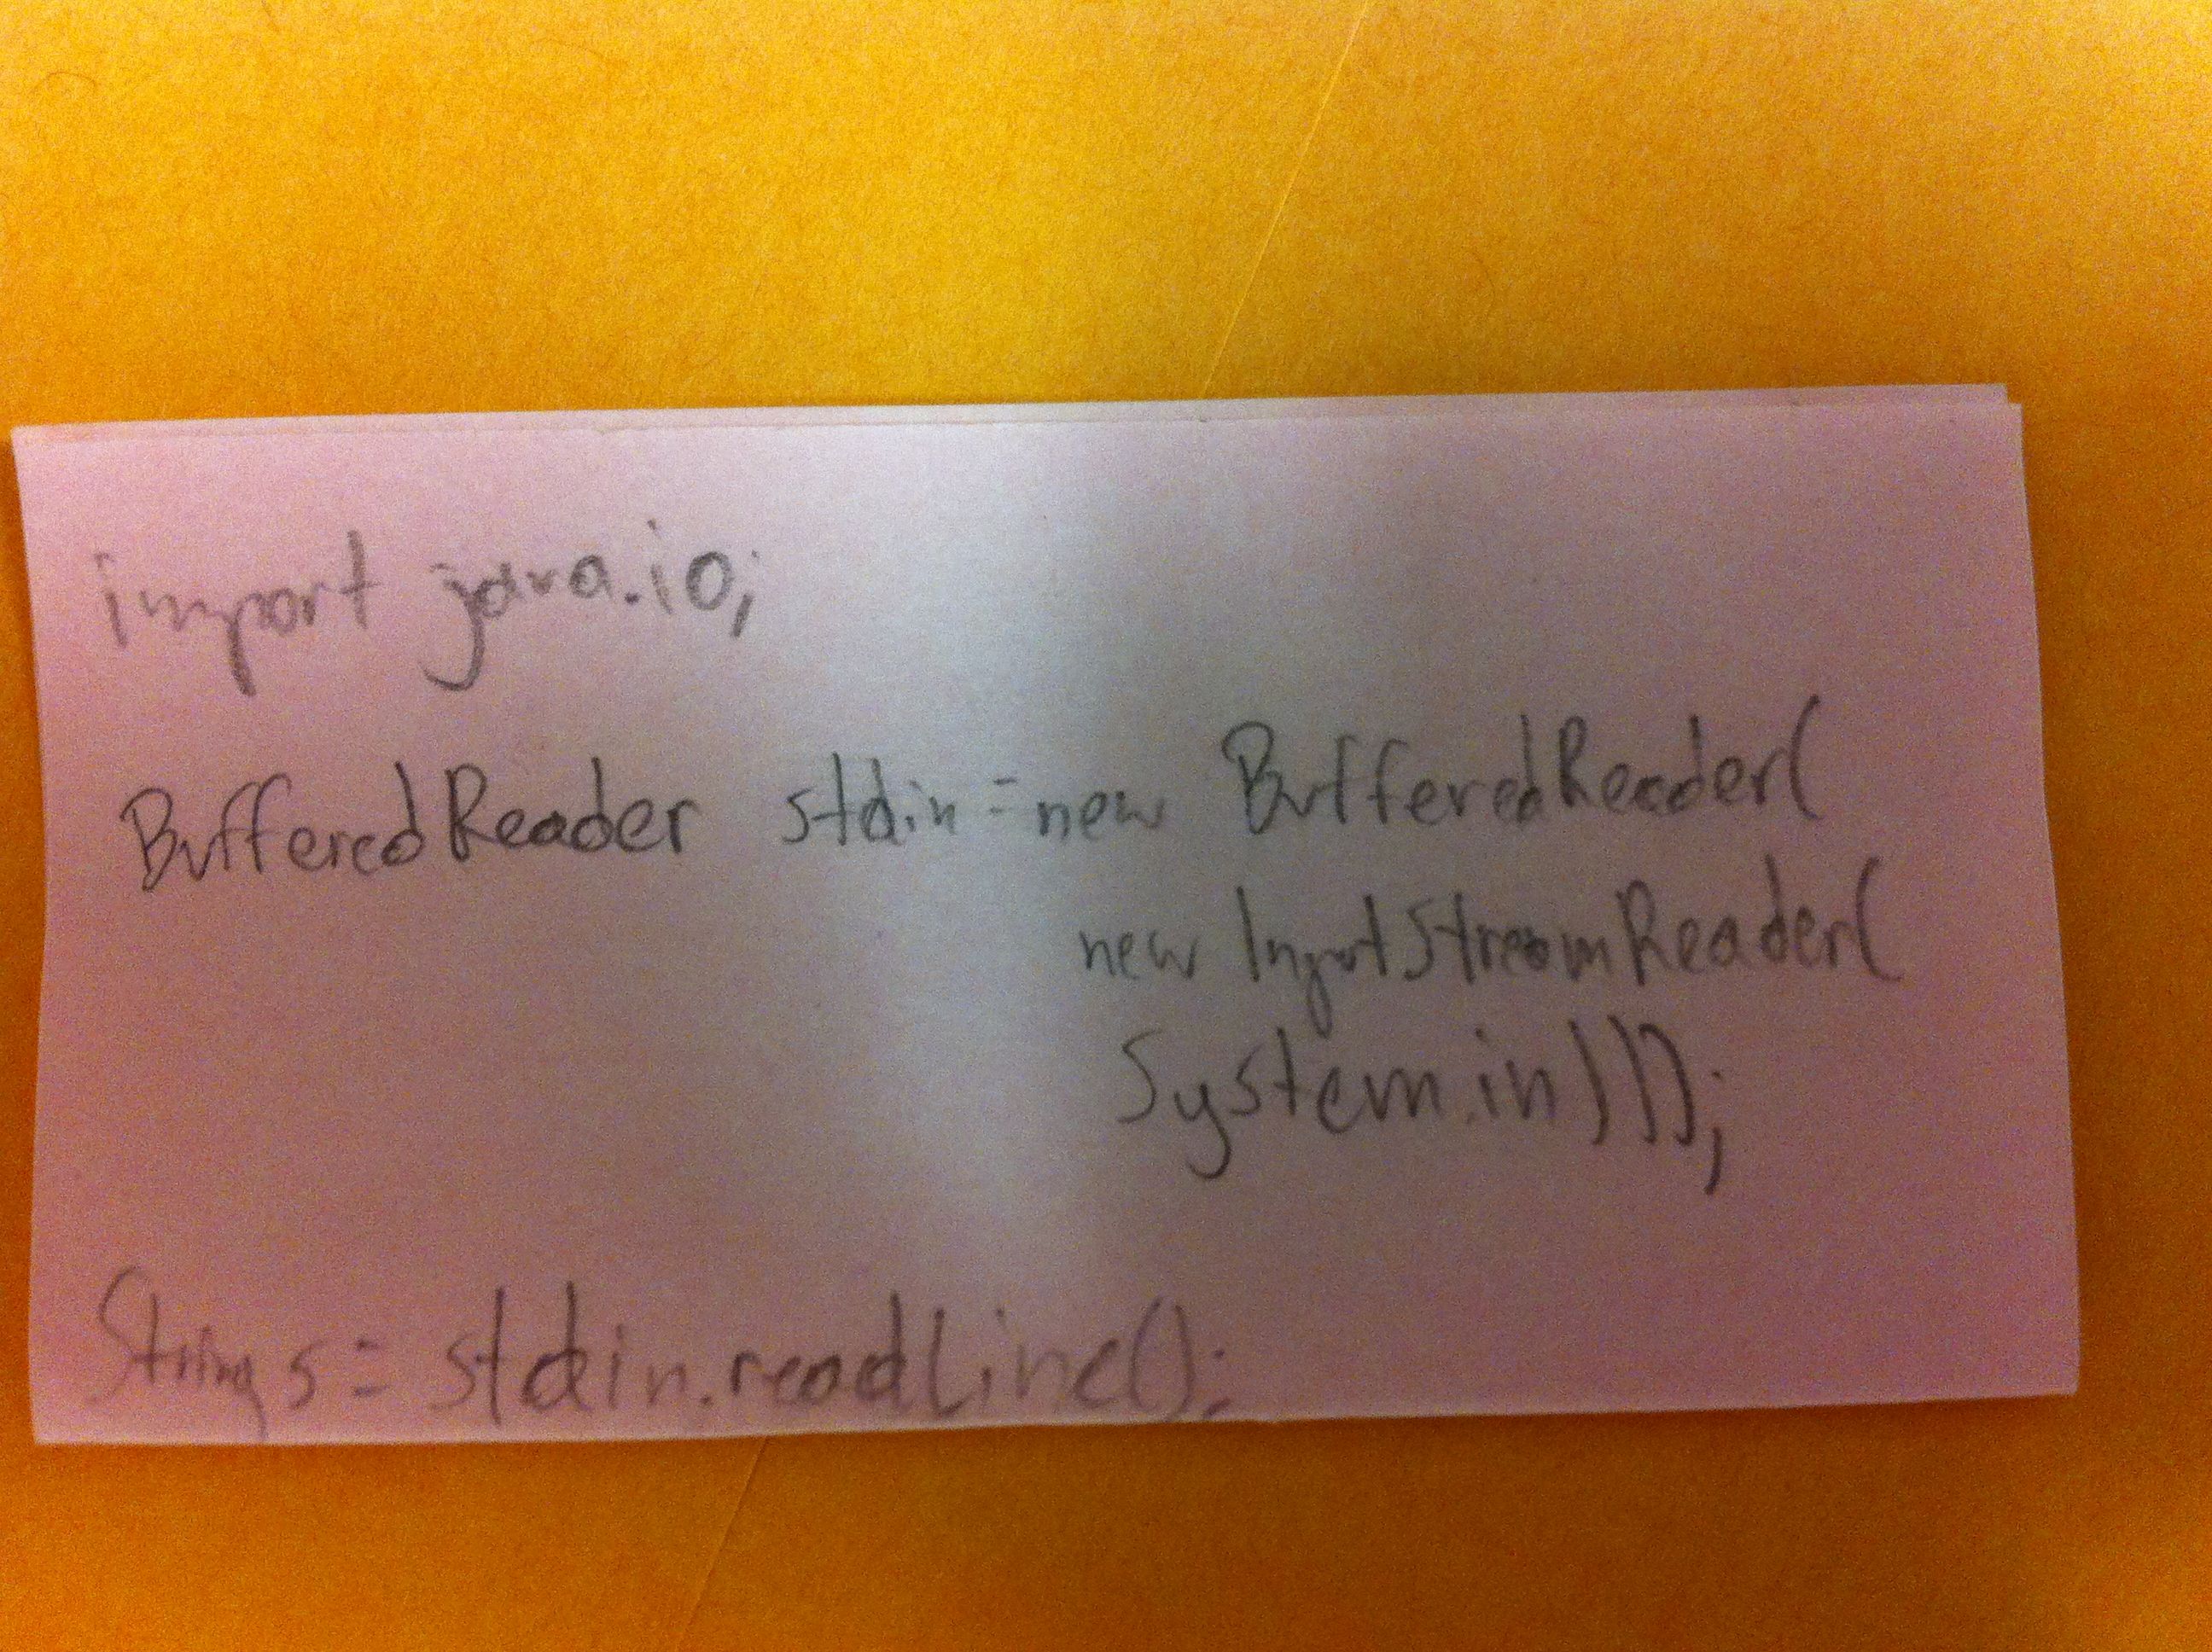 import java.io;
BufferedReader stdin = new BufferedReader(
new InputStreamReader(
System.in)));
String s = stdin.readLine();